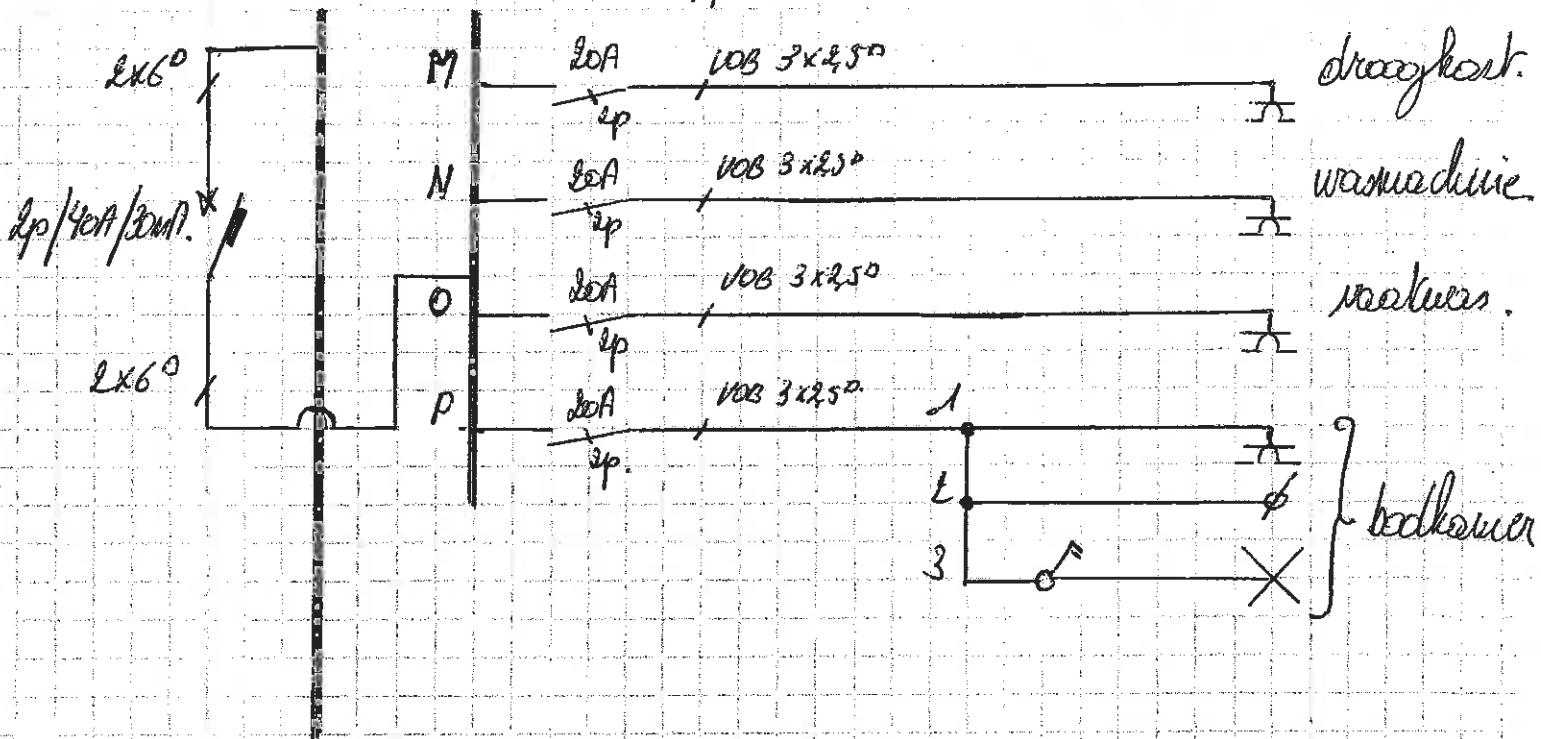 2x6□
2p/40A/30mA.
2x6□
M 20A 2p VOB 3x2,5□ droogkast.
N 20A 2p VOB 3x2,5□ wasmachine.
O 20A 2p VOB 3x2,5□ vaatwas.
P 20A 2p. VOB 3x2,5□ 1
2
3
badkamer